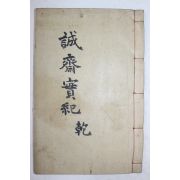 誠齋實紀 乾